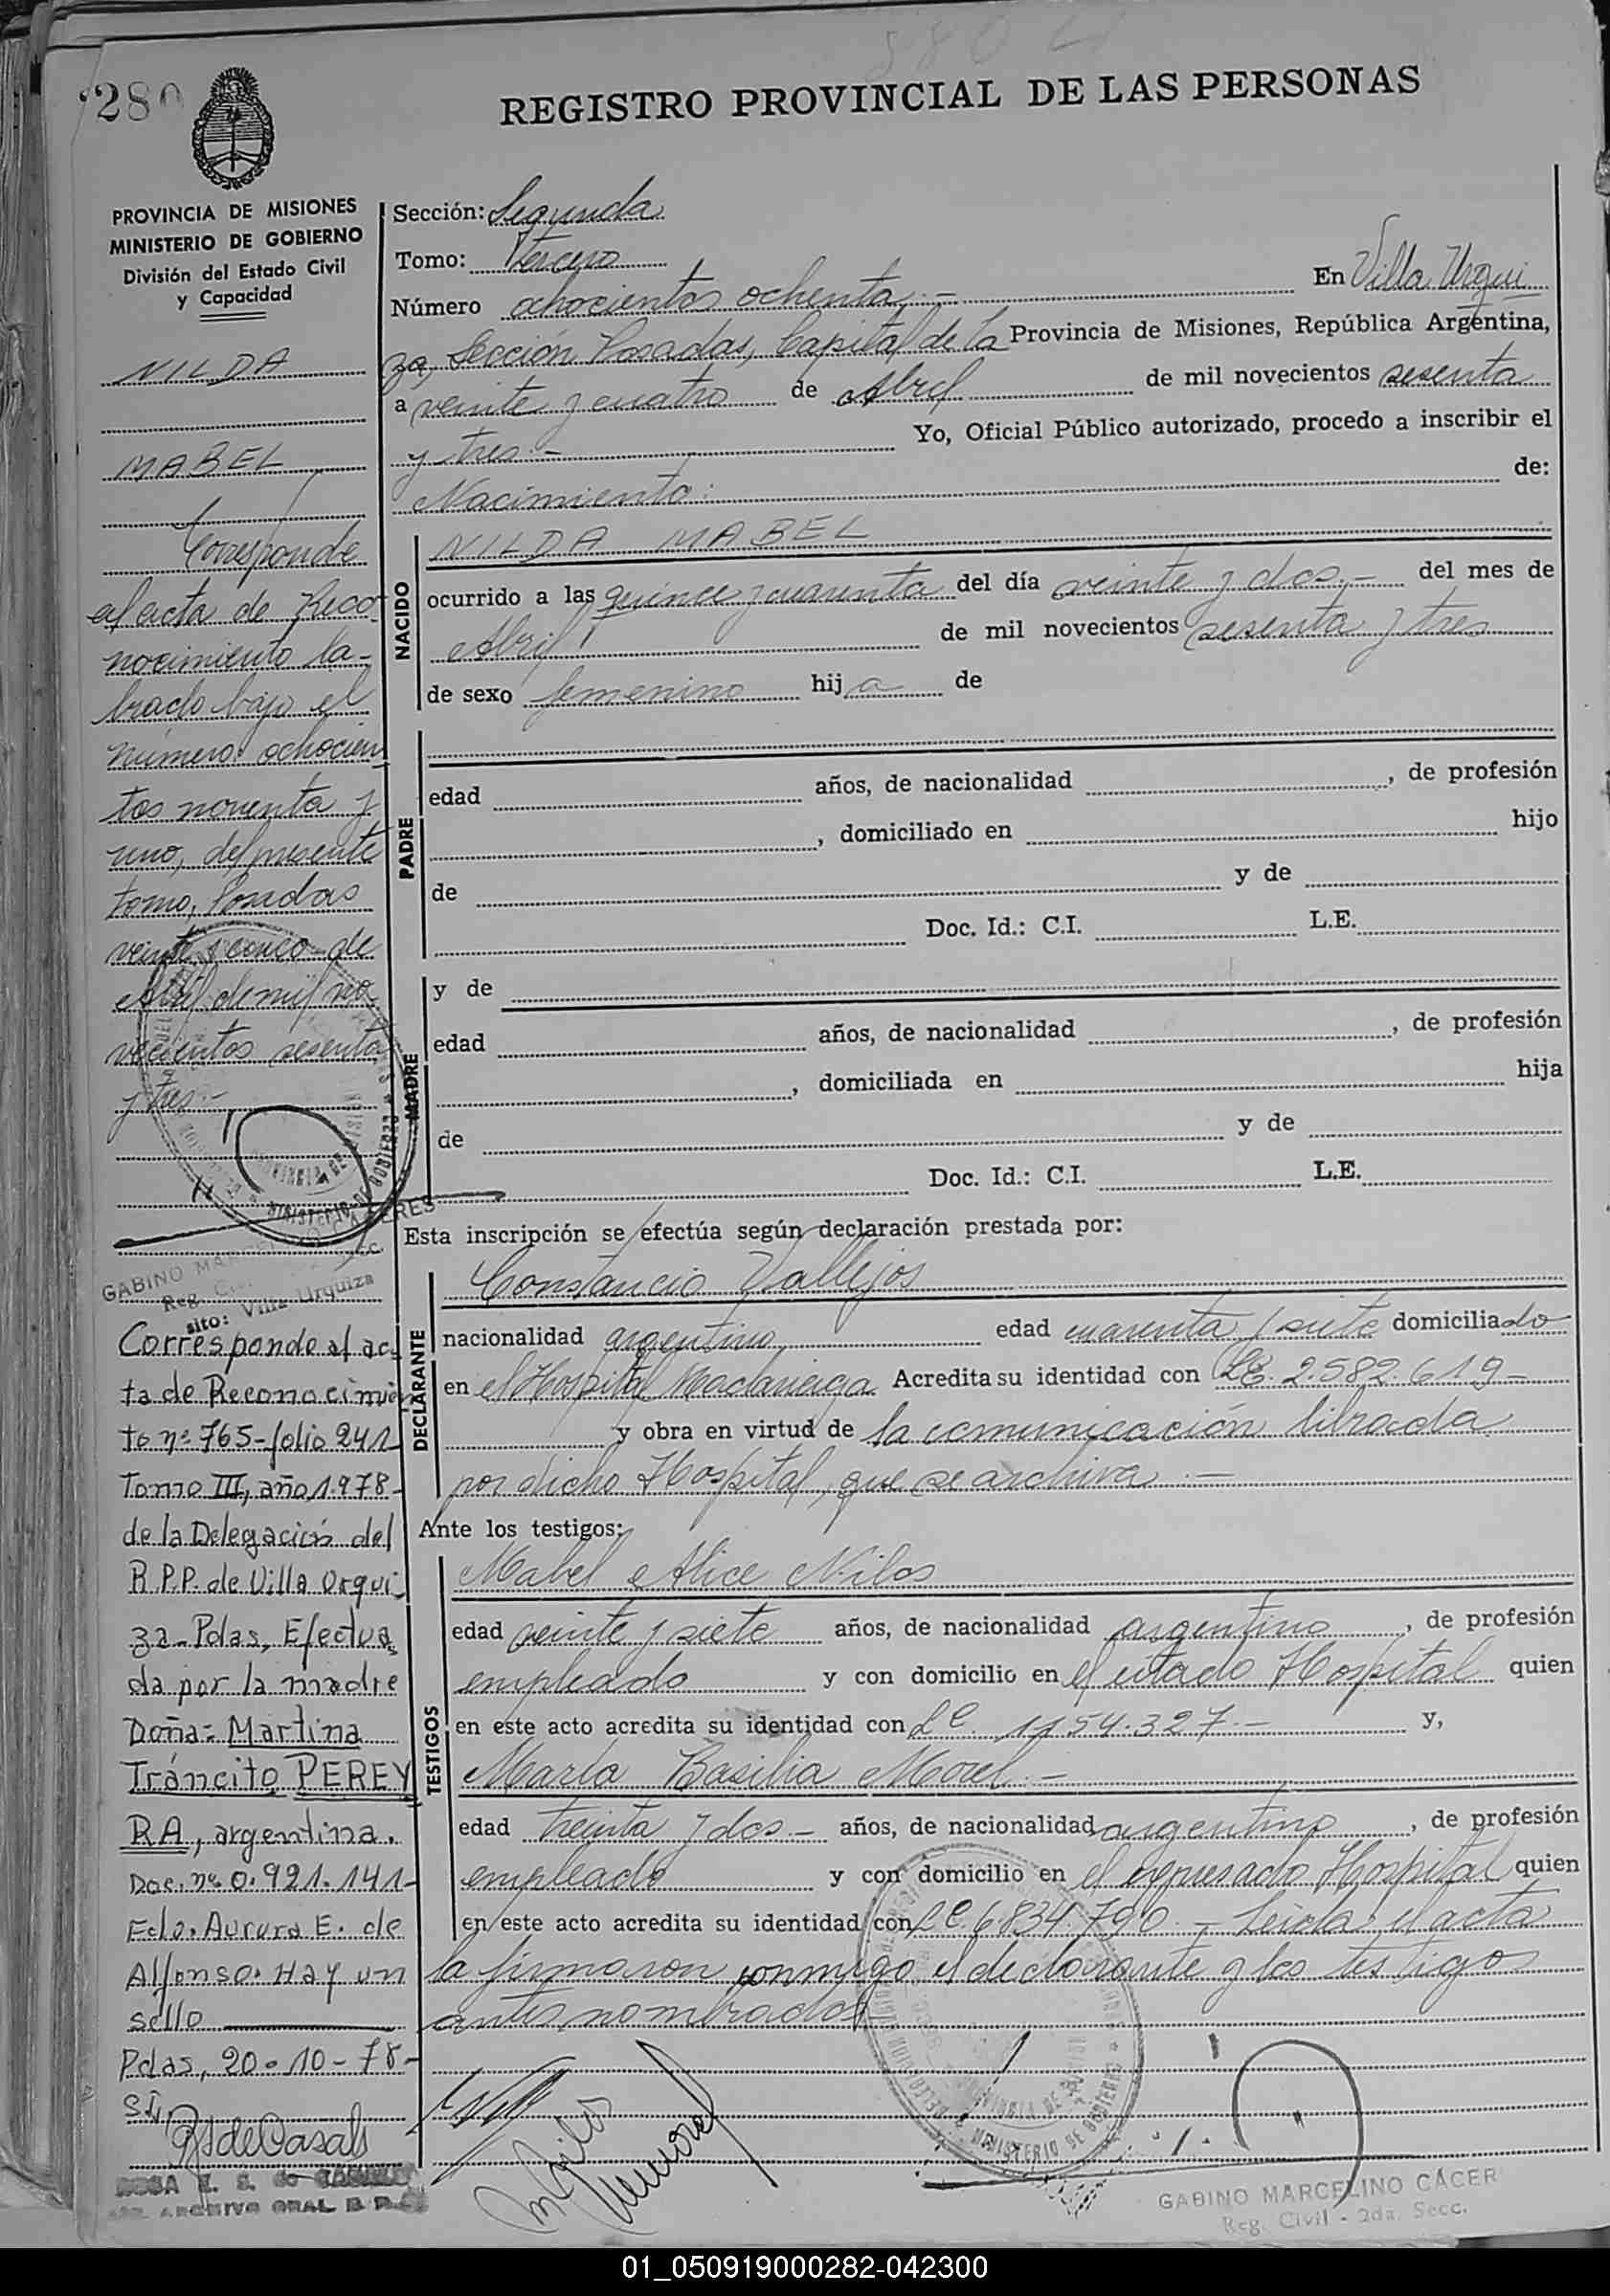 280
REGISTRO PROVINCIAL DE LAS PERSONAS
PROVINCIA DE MISIONES
MINISTERIO DE GOBIERNO
División del Estado Civil
y Capacidad
NILDA
MABEL
Corresponde
al acta de Reco-
nocimiento la-
brado bajo el
número: ochocien
tos noventa y
uno, del presente
tomo, Posadas
veinte y cinco de
Abril de mil no
vecientos sesenta
y tres.-
GABINO MARCELINO CACERES
Reg.
sito: Villa Urquiza
Corresponde al ac-
ta de Reconocimien
to nº 765-folio 241
Tomo III, año 1.978-
de la Delegación del
R.P.P. de Villa Urqui-
za-Pdas, Efectua
da por la madre
Doña= Martina
Tráncito PEREY
RA, argentina.
Doc. nº 0.921.141-
Fdo. Aurora E. de
Alfonso. Hay un
sello
Pdas, 20-10-78-
de Casals
Sección: Segunda
Tomo: Tercero
Número ochocientos ochenta.- En Villa Urqui
za, Sección Posadas, Capital de la Provincia de Misiones, República Argentina,
a veinte y cuatro de Abril de mil novecientos sesenta
y tres.- Yo, Oficial Público autorizado, procedo a inscribir el
Nacimiento: de:
NACIDO
NILDA MABEL
ocurrido a las quince y cuarenta del día veinte y dos.- del mes de
Abril de mil novecientos sesenta y tres
de sexo femenino hija de
PADRE
edad años, de nacionalidad , de profesión
, domiciliado en hijo
de y de
Doc. Id.: C.I. L.E.
MADRE
y de
edad años, de nacionalidad , de profesión
, domiciliada en hija
de y de
Doc. Id.: C.I. L.E.
Esta inscripción se efectúa según declaración prestada por:
DECLARANTE
Constancio Vallejos
nacionalidad argentino edad cuarenta y siete domiciliado
en el Hospital Madariaga Acredita su identidad con LE. 2.582.619-
y obra en virtud de la comunicación librada
por dicho Hospital, que se archiva.-
Ante los testigos:
TESTIGOS
Mabel Alice Nilos
edad veinte y siete años, de nacionalidad argentino , de profesión
empleado y con domicilio en el citado Hospital quien
en este acto acredita su identidad con LC. 1154.327.- y,
María Basilia Morel.-
edad treinta y dos- años, de nacionalidad argentino , de profesión
empleado y con domicilio en el expresado Hospital quien
en este acto acredita su identidad con LC. 6834.790.- Leída el acta
la firmaron conmigo el declarante y los testigos
antes nombrados
MINISTERIO DE GOBIERNO
GABINO MARCELINO CÁCER
Reg. Civil - 2da. Secc.
01_050919000282-042300